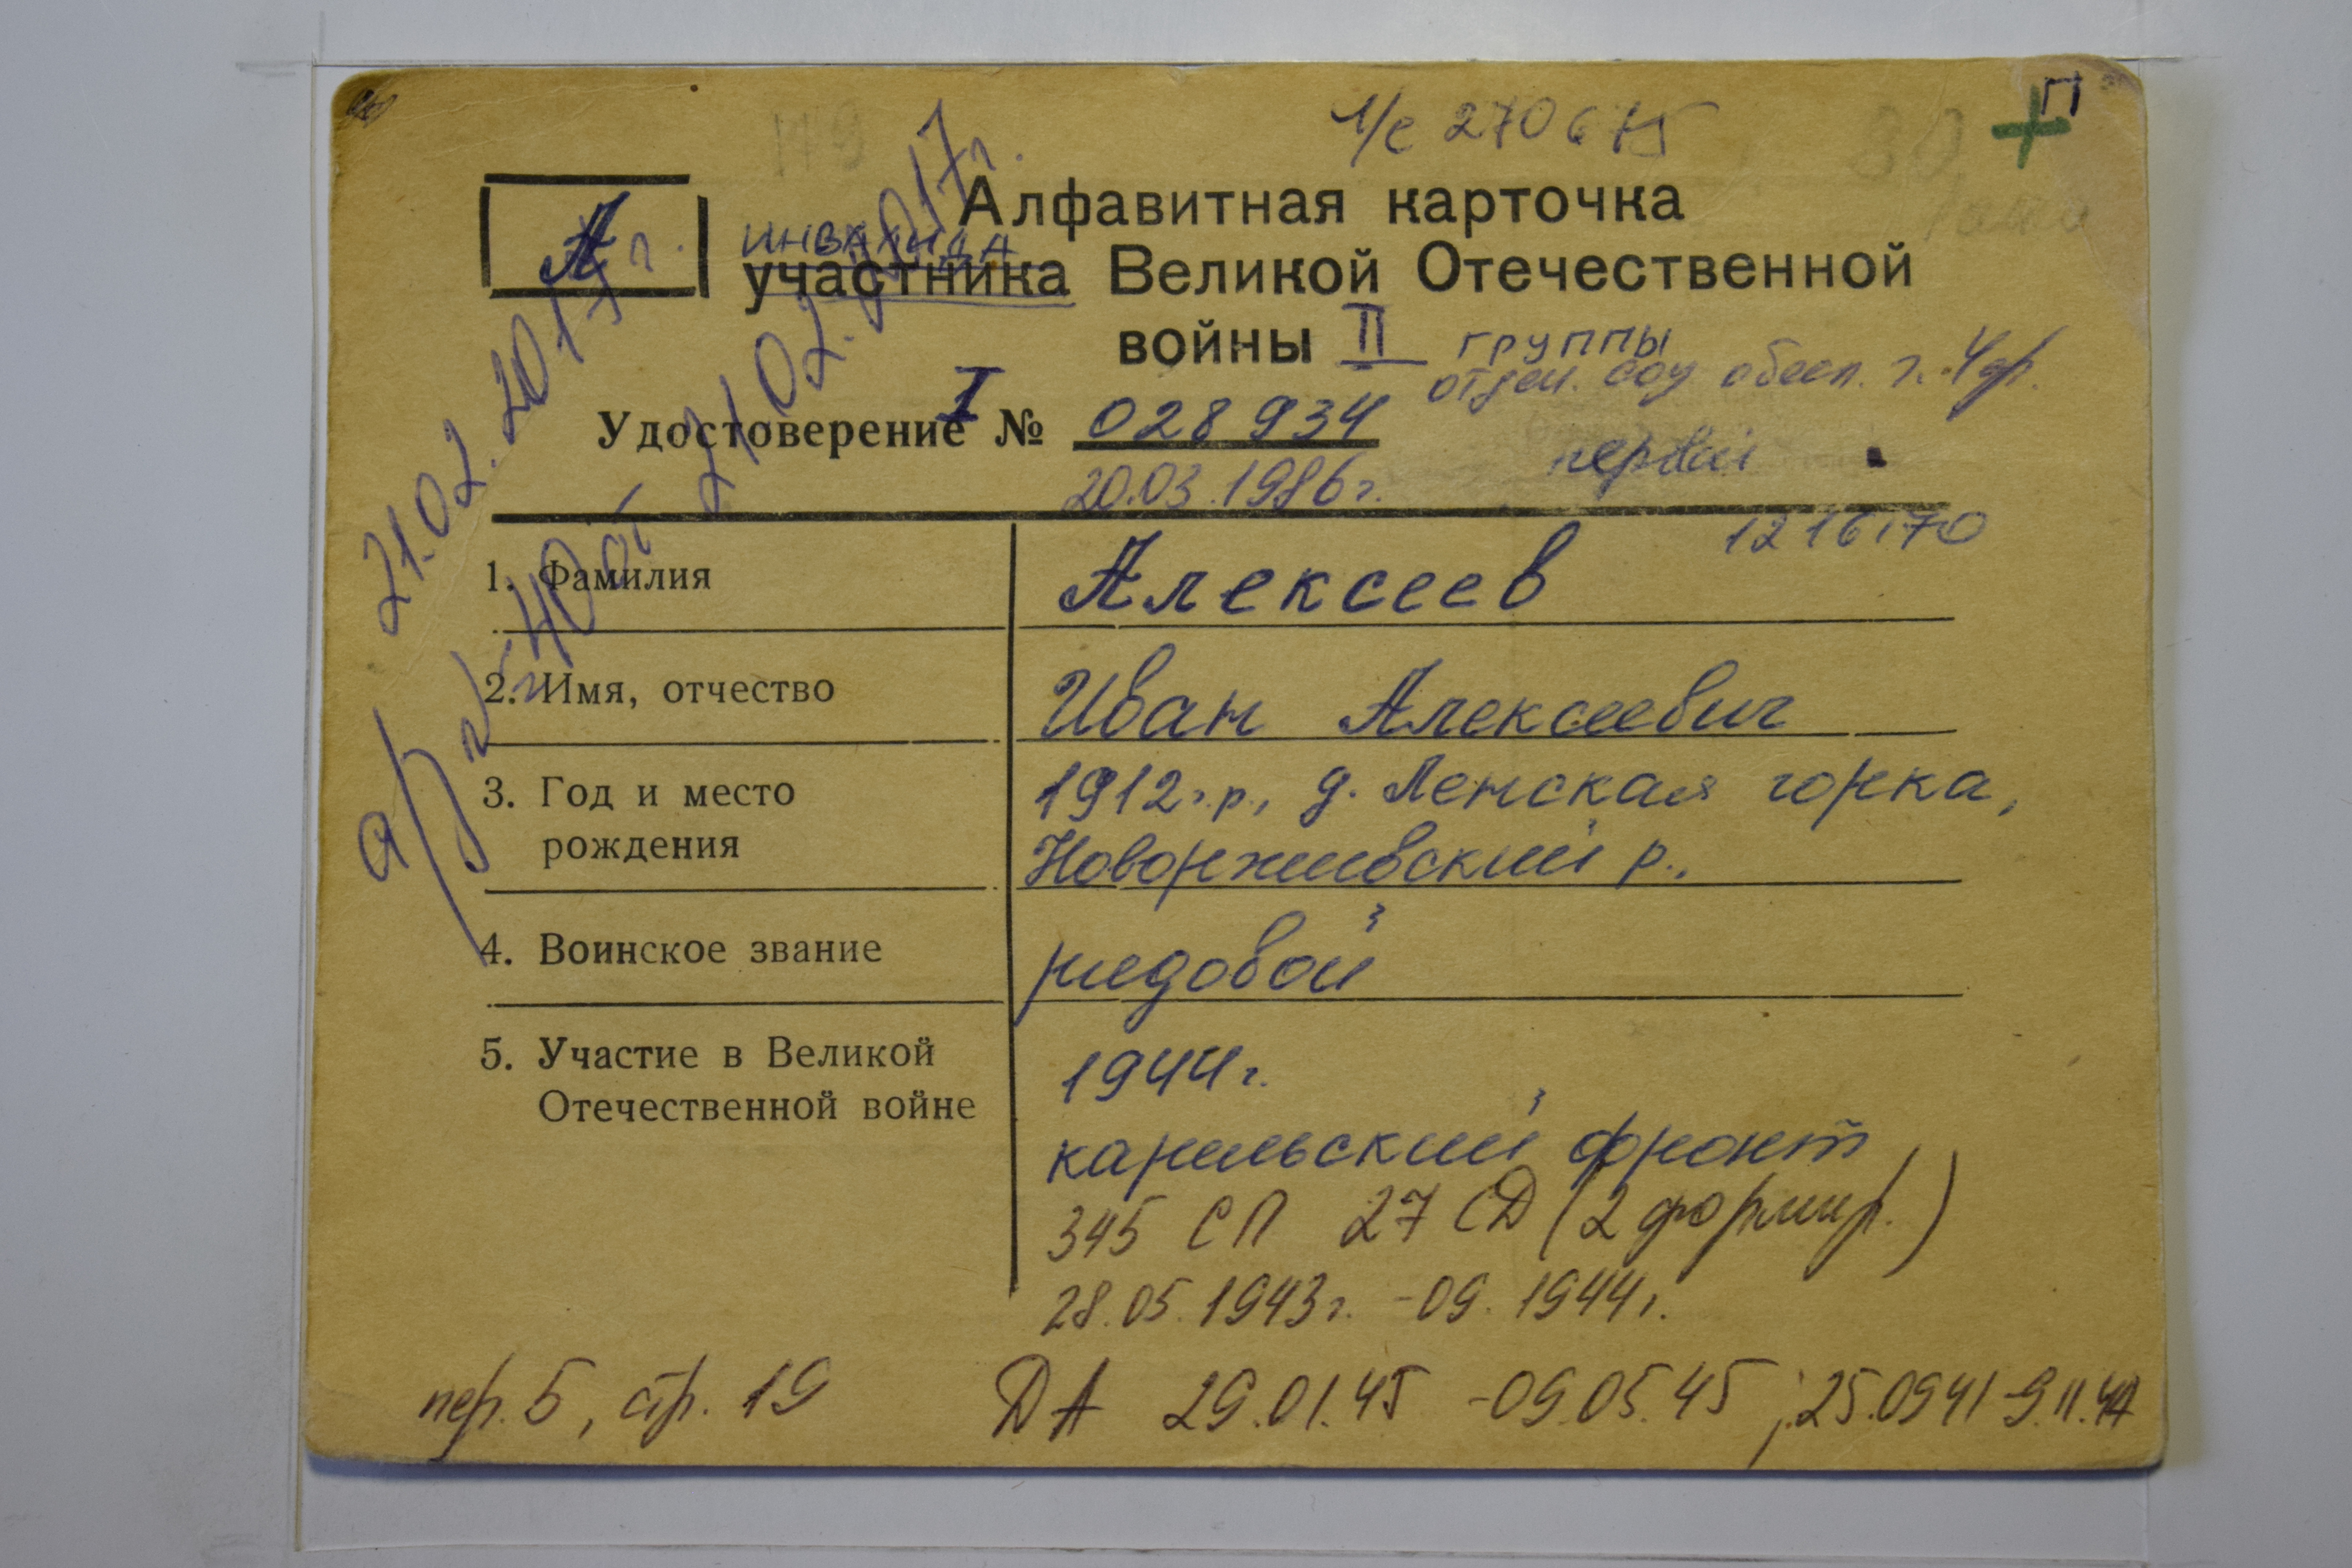 П
1/с 270675
А
Алфавитная карточка
инвалида
участника Великой Отечественной
войны II группы
отдел. соц обесп. г.
I
Удостоверение № 028934
20.03.1986г.
первой
1216170
21.02.2017г.
от 21.02.2017г.
1. Фамилия Алексеев
2. Имя, отчество Иван Алексеевич
3. Год и место 1912г.р., д. Ленская горка,
рождения Новоржевский р.,
4. Воинское звание рядовой
5. Участие в Великой 1944г.
Отечественной войне
карельский фронт
345 СП 27 СД (2 формир.)
28.05.1943г. - 09.1944г.
пер. 5, стр. 19 ДА 29.01.45 - 09.05.45; 25.0941-9.11.44